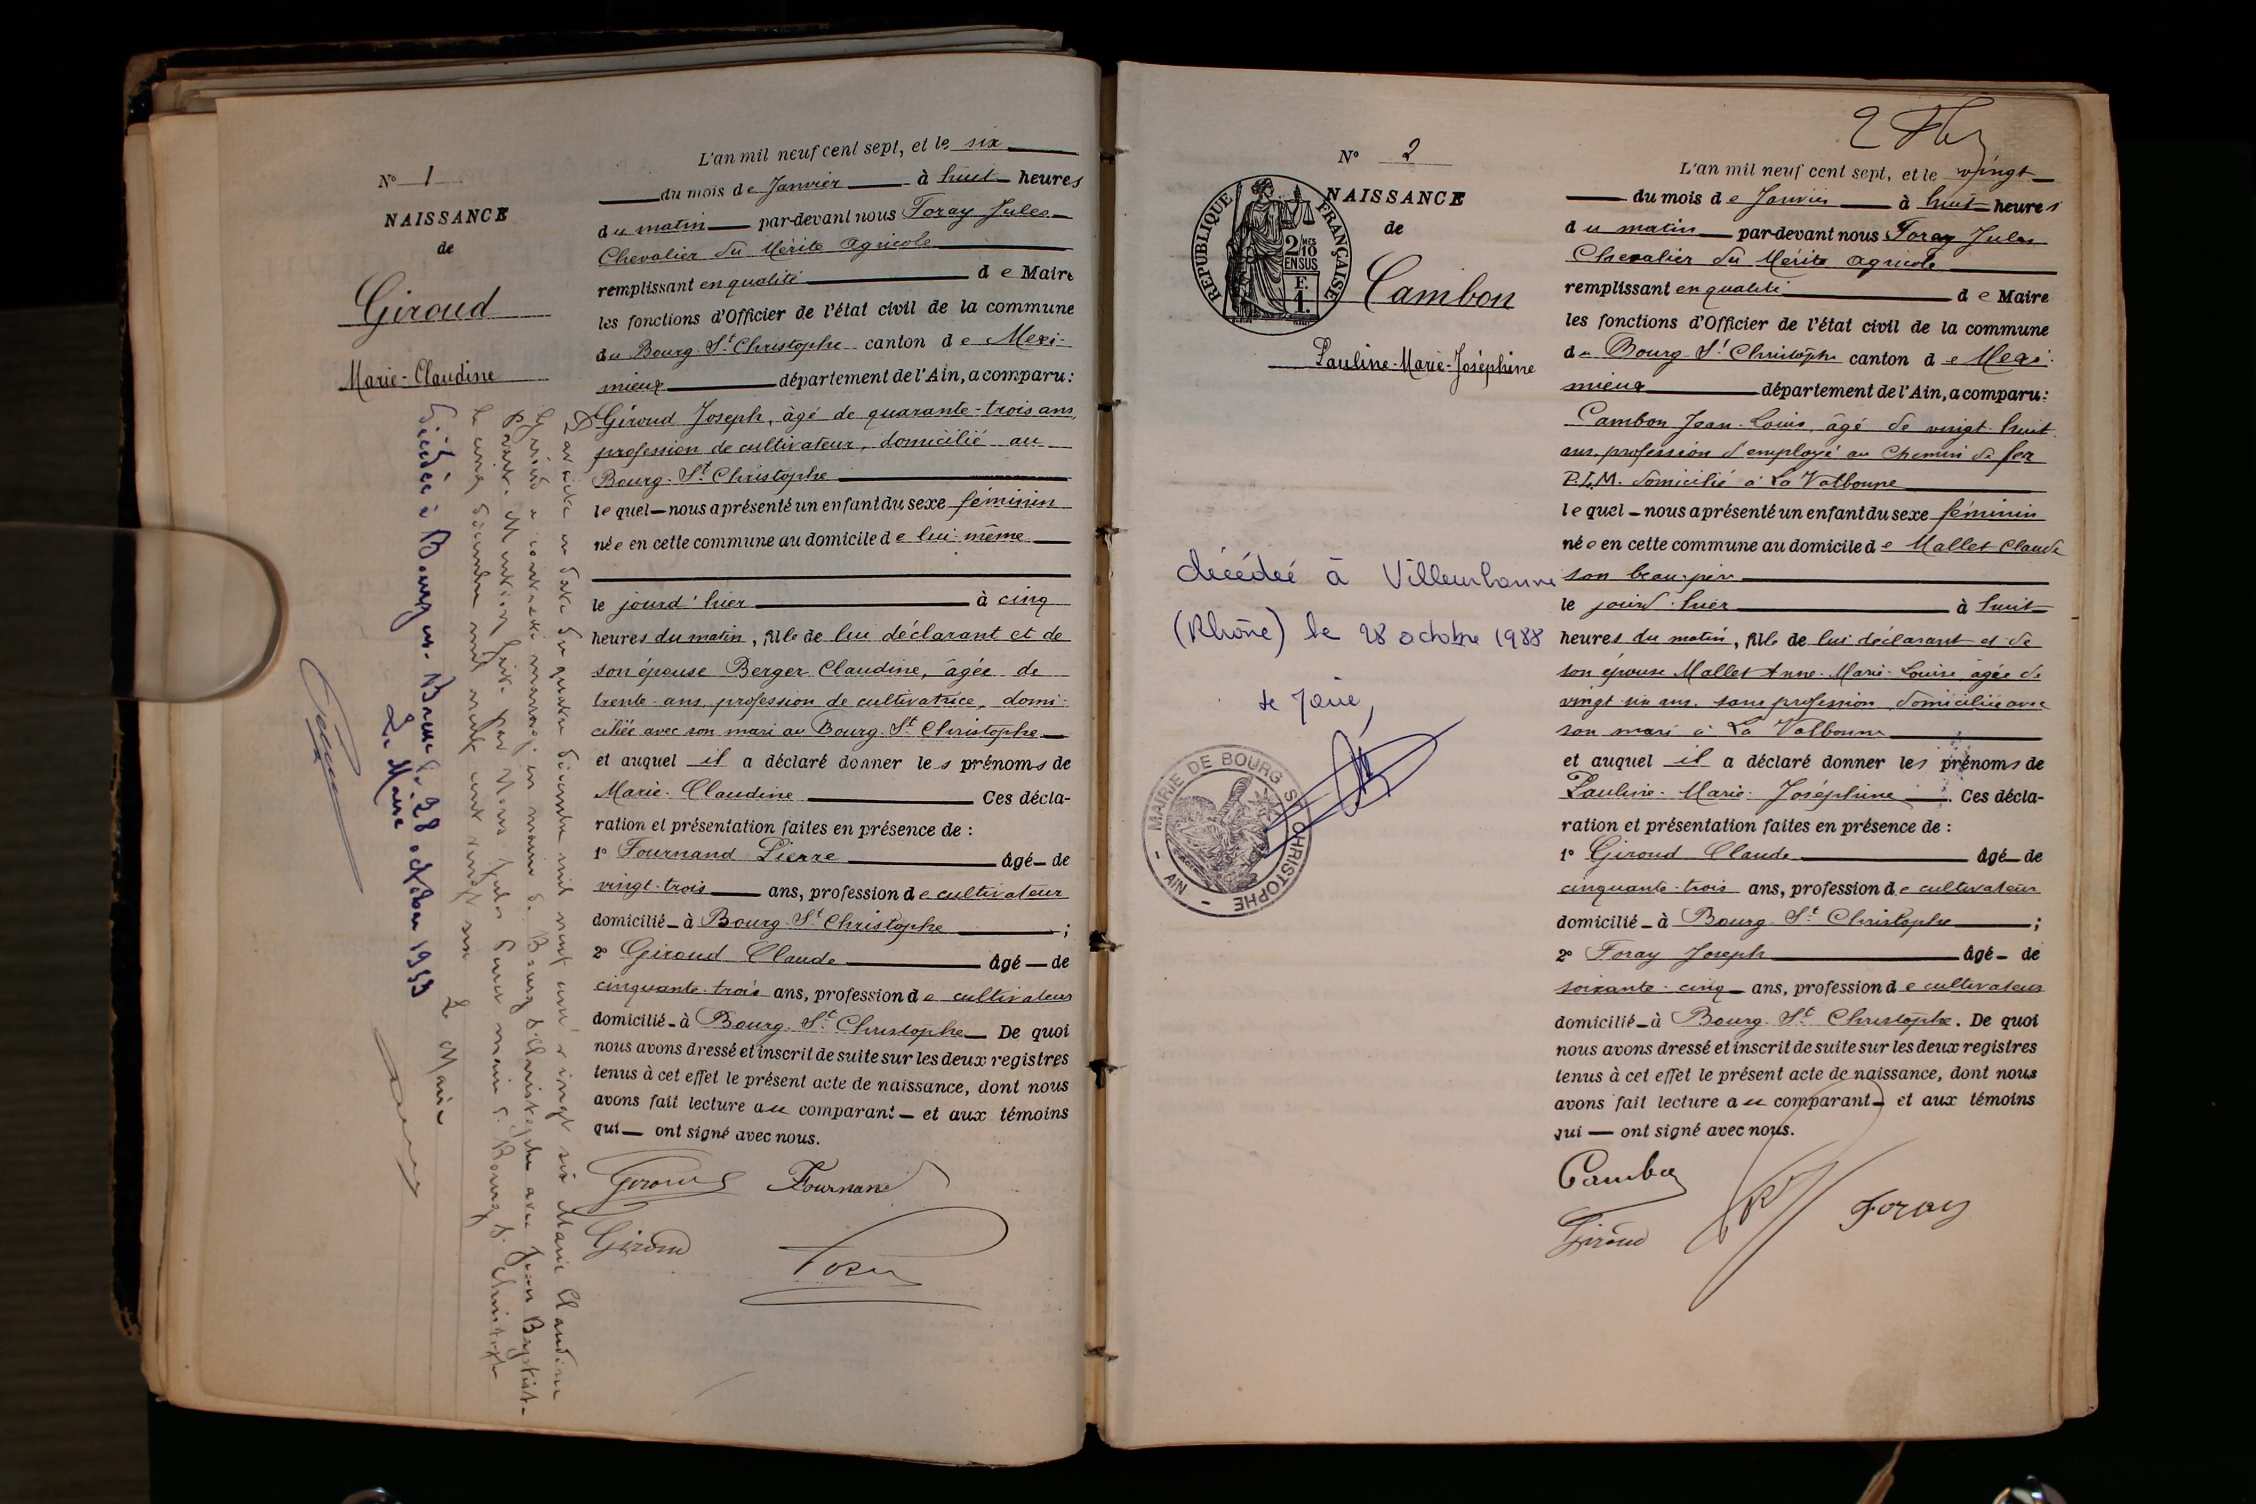 N° 1
NAISSANCE
de
Giroud
Marie-Claudine
L'an mil neuf cent sept, et le six
du mois de Janvier à huit heures
du matin par-devant nous Foray Jules
Chevalier du Mérite Agricole
remplissant en qualité de Maire
les fonctions d'Officier de l'état civil de la commune
du Bourg-St Christophe canton de Mexi-
mieux département de l'Ain, a comparu:
Giroud Joseph, âgé de quarante-trois ans,
profession de cultivateur, domicilié au
Bourg-St Christophe
lequel nous a présenté un enfant du sexe féminin
née en cette commune au domicile de lui-même
le jourd'hier à cinq
heures du matin, fille de lui déclarant et de
son épouse Berger Claudine, âgée de
trente ans, profession de cultivatrice, domi-
ciliée avec son mari au Bourg-St Christophe
et auquel il a déclaré donner les prénoms de
Marie-Claudine Ces décla-
ration et présentation faites en présence de :
1° Fournand Pierre âgé de
vingt-trois ans, profession de cultivateur
domicilié à Bourg-St Christophe ;
2° Giroud Claude âgé de
cinquante-trois ans, profession de cultivateur
domicilié à Bourg-St Christophe De quoi
nous avons dressé et inscrit de suite sur les deux registres
tenus à cet effet le présent acte de naissance, dont nous
avons fait lecture au comparant et aux témoins
qui ont signé avec nous.
Giroud Fournand
Giroud Foray
en date du quatre Décembre mil neuf cent vingt six Marie Claudine
Giroud a contracté mariage en mairie de Bourg St Christophe avec Jean Baptiste
Mention faite par Nous Jules Foray maire de Bourg St Christophe
le cinq Décembre mil neuf cent vingt six
Le Maire
Décédée à Bourg-en-Bresse le 28 octobre 1953
Le Maire
N° 2
NAISSANCE
de
Cambon
Pauline-Marie-Joséphine
REPUBLIQUE FRANÇAISE
2 MES 10 EN SUS
F. 1.
décédée à Villeurbanne
(Rhône) le 28 octobre 1988
le Maire,
MAIRIE DE BOURG ST CHRISTOPHE - AIN -
L'an mil neuf cent sept, et le vingt
du mois de Janvier à huit heures
du matin par-devant nous Foray Jules
Chevalier du Mérite Agricole
remplissant en qualité de Maire
les fonctions d'Officier de l'état civil de la commune
du Bourg-St Christophe canton de Mexi-
mieux département de l'Ain, a comparu:
Cambon Jean-Louis, âgé de vingt-huit
ans, profession d'employé au Chemin de fer
P.L.M. domicilié à La Valbonne
lequel nous a présenté un enfant du sexe féminin
née en cette commune au domicile de Mallet Claude
son beau-père
le jourd'hier à huit
heures du matin, fille de lui déclarant et de
son épouse Mallet Anne-Marie-Louise âgée de
vingt-six ans, sans profession, domiciliée avec
son mari à La Valbonne
et auquel il a déclaré donner les prénoms de
Pauline-Marie-Joséphine. Ces décla-
ration et présentation faites en présence de :
1° Giroud Claude âgé de
cinquante-trois ans, profession de cultivateur
domicilié à Bourg-St Christophe ;
2° Foray Joseph âgé de
soixante-cinq ans, profession de cultivateur
domicilié à Bourg-St Christophe. De quoi
nous avons dressé et inscrit de suite sur les deux registres
tenus à cet effet le présent acte de naissance, dont nous
avons fait lecture au comparant et aux témoins
qui ont signé avec nous.
Cambon
Giroud Foray